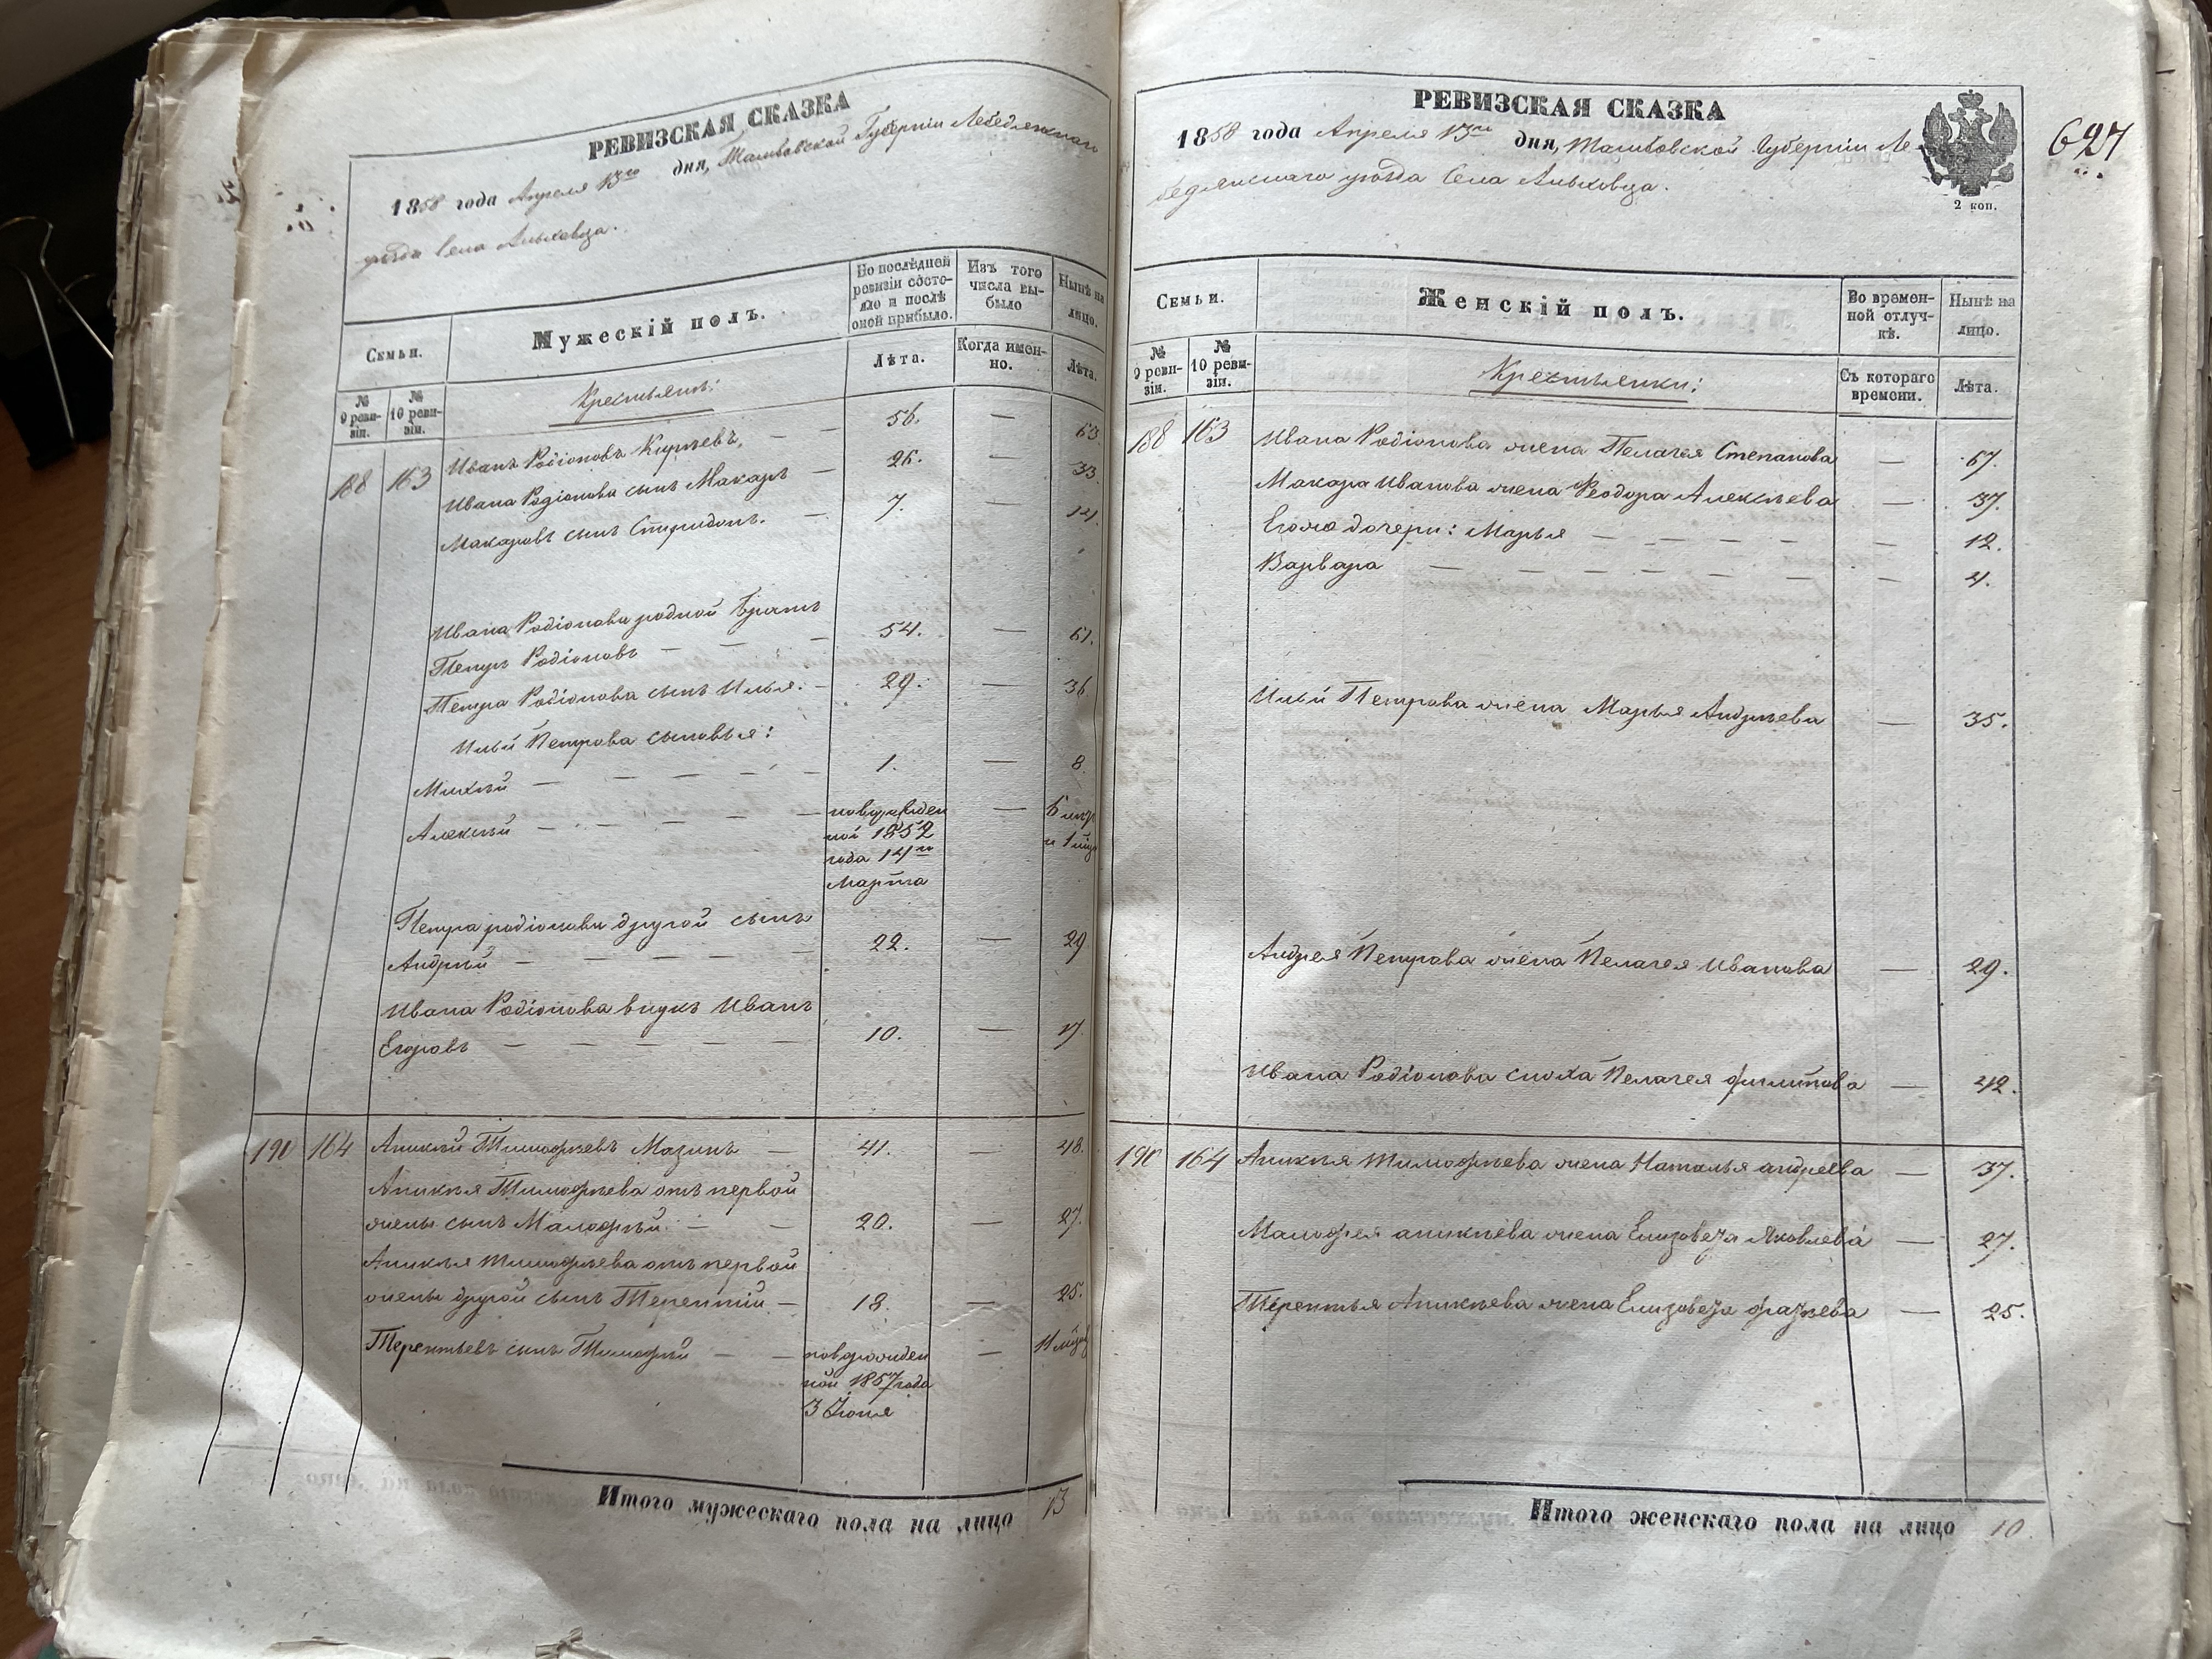 РЕВИЗСКАЯ СКАЗКА
1858 года Апреля 13го дня, Тамбовской Губерніи Лебедянскаго
уѣзда Села
Семьи.
Мужескій полъ.
По послѣдней ревизіи состояло и послѣ оной прибыло.
Изъ того числа выбыло
Нынѣ на лицо.
№ 9 ревизіи.
№ 10 ревизіи.
Лѣта.
Когда именно.
Лѣта.
Крестьяне:
188 163 Иванъ Родіоновъ — — 56. — 63.
Ивана Родіонова сынъ Макаръ — 26. — 33.
Макаровъ сынъ Спиридонъ. — 7. — 14.
Ивана Родіонова родной братъ
Петръ Родіоновъ — — — 54. — 61.
Петра Родіонова сынъ Илья. — 29. — 36.
Ильи Петрова сыновья:
— — — — — 1. — 8.
Алексѣй — — — — — новорожден
ной 1852
года 14го
Марта — 6 лѣтъ
и 1 мѣц
Петра родіонова другой сынъ
Андрѣй — — — — 22. — 29
Ивана Родіонова внукъ Иванъ
Егоровъ — — — — — 10. — 17.
190 164 Аникѣй Тимофѣевъ Мазинъ — 41. — 48.
Аникѣя Тимофѣева отъ первой
жены сынъ Малофѣй. — — 20. — 27.
Аникѣя тимофѣева отъ первой
жены другой сынъ Терентій — 18. — 25.
Терентьевъ сынъ Тимофѣй — — новорожден
ной 1857 года
3 Іюня — 11 мѣсяц
Итого мужескаго пола на лицо 13
РЕВИЗСКАЯ СКАЗКА
1858 года Апреля 13го дня, Тамбовской Губерніи Ле-
бедянскаго уѣзда Села
2 коп.
627
Семьи.
Женскій полъ.
Во временной отлучкѣ.
Нынѣ на лицо.
№ 9 ревизіи.
№ 10 ревизіи.
Съ котораго времени.
Лѣта.
Крестьянки:
188 163 Ивана Родіонова жена Пелагея Степанова — 67.
Макара Иванова жена Феодора Алексѣева — 37.
дочери: Марья — — — — — 12.
Варвара — — — — — — 4.
Ильи Петрова жена Марья Андрѣева — 35.
Андрея Петрова жена Пелагея Иванова — 29.
Ивана Родіонова сноха Пелагея филипова — 42.
190 164 Аникѣя тимофѣева жена Наталья андреева — 37.
Малофея аникѣева жена Елизовета Яковлева — 27.
Терентья Аникѣева жена Елизовета — 25.
Итого женскаго пола на лицо 10.